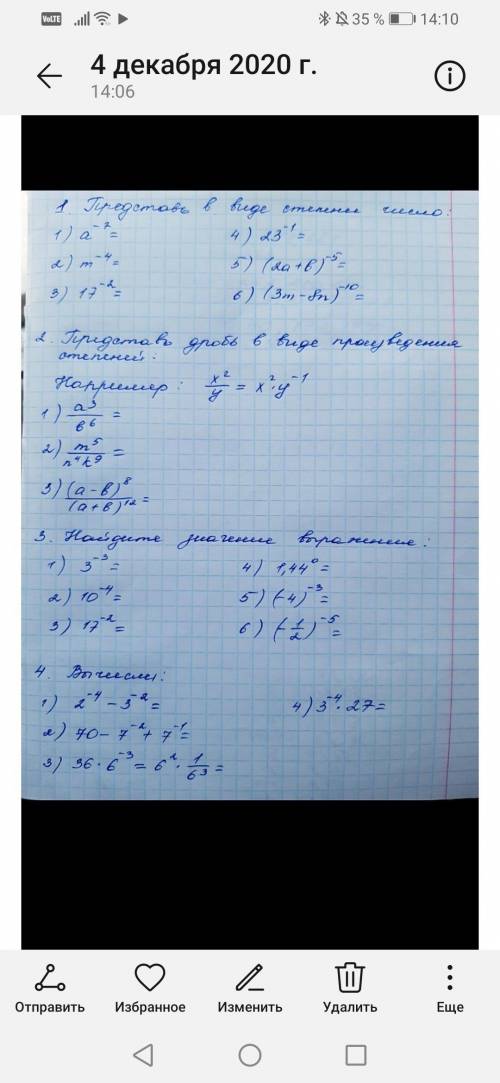 VoLTE 35 % 14:10
4 декабря 2020 г.
14:06
1. Представь в виде степени число:
1) a⁻⁷=
2) m⁻⁴=
3) 17⁻²=
4) 23⁻¹=
5) (2a+b)⁻⁵=
6) (3m-8n)⁻¹⁰=
2. Представь дробь в виде произведения
степеней:
Например: x²/y = x²·y⁻¹
1) a³/b⁶ =
2) m⁵/n⁴k⁹ =
3) (a-b)⁸/(a+b)¹² =
3. Найдите значение выражение:
1) 3⁻³=
2) 10⁻⁴=
3) 17⁻²=
4) 1,44⁰=
5) (-4)⁻³=
6) (-1/2)⁻⁵=
4. Вычисли:
1) 2⁻⁴-3⁻²=
2) 70-7⁻²+7⁻¹=
3) 36·6⁻³=6²·1/6³=
4) 3⁻⁴·27=
Отправить Избранное Изменить Удалить Еще